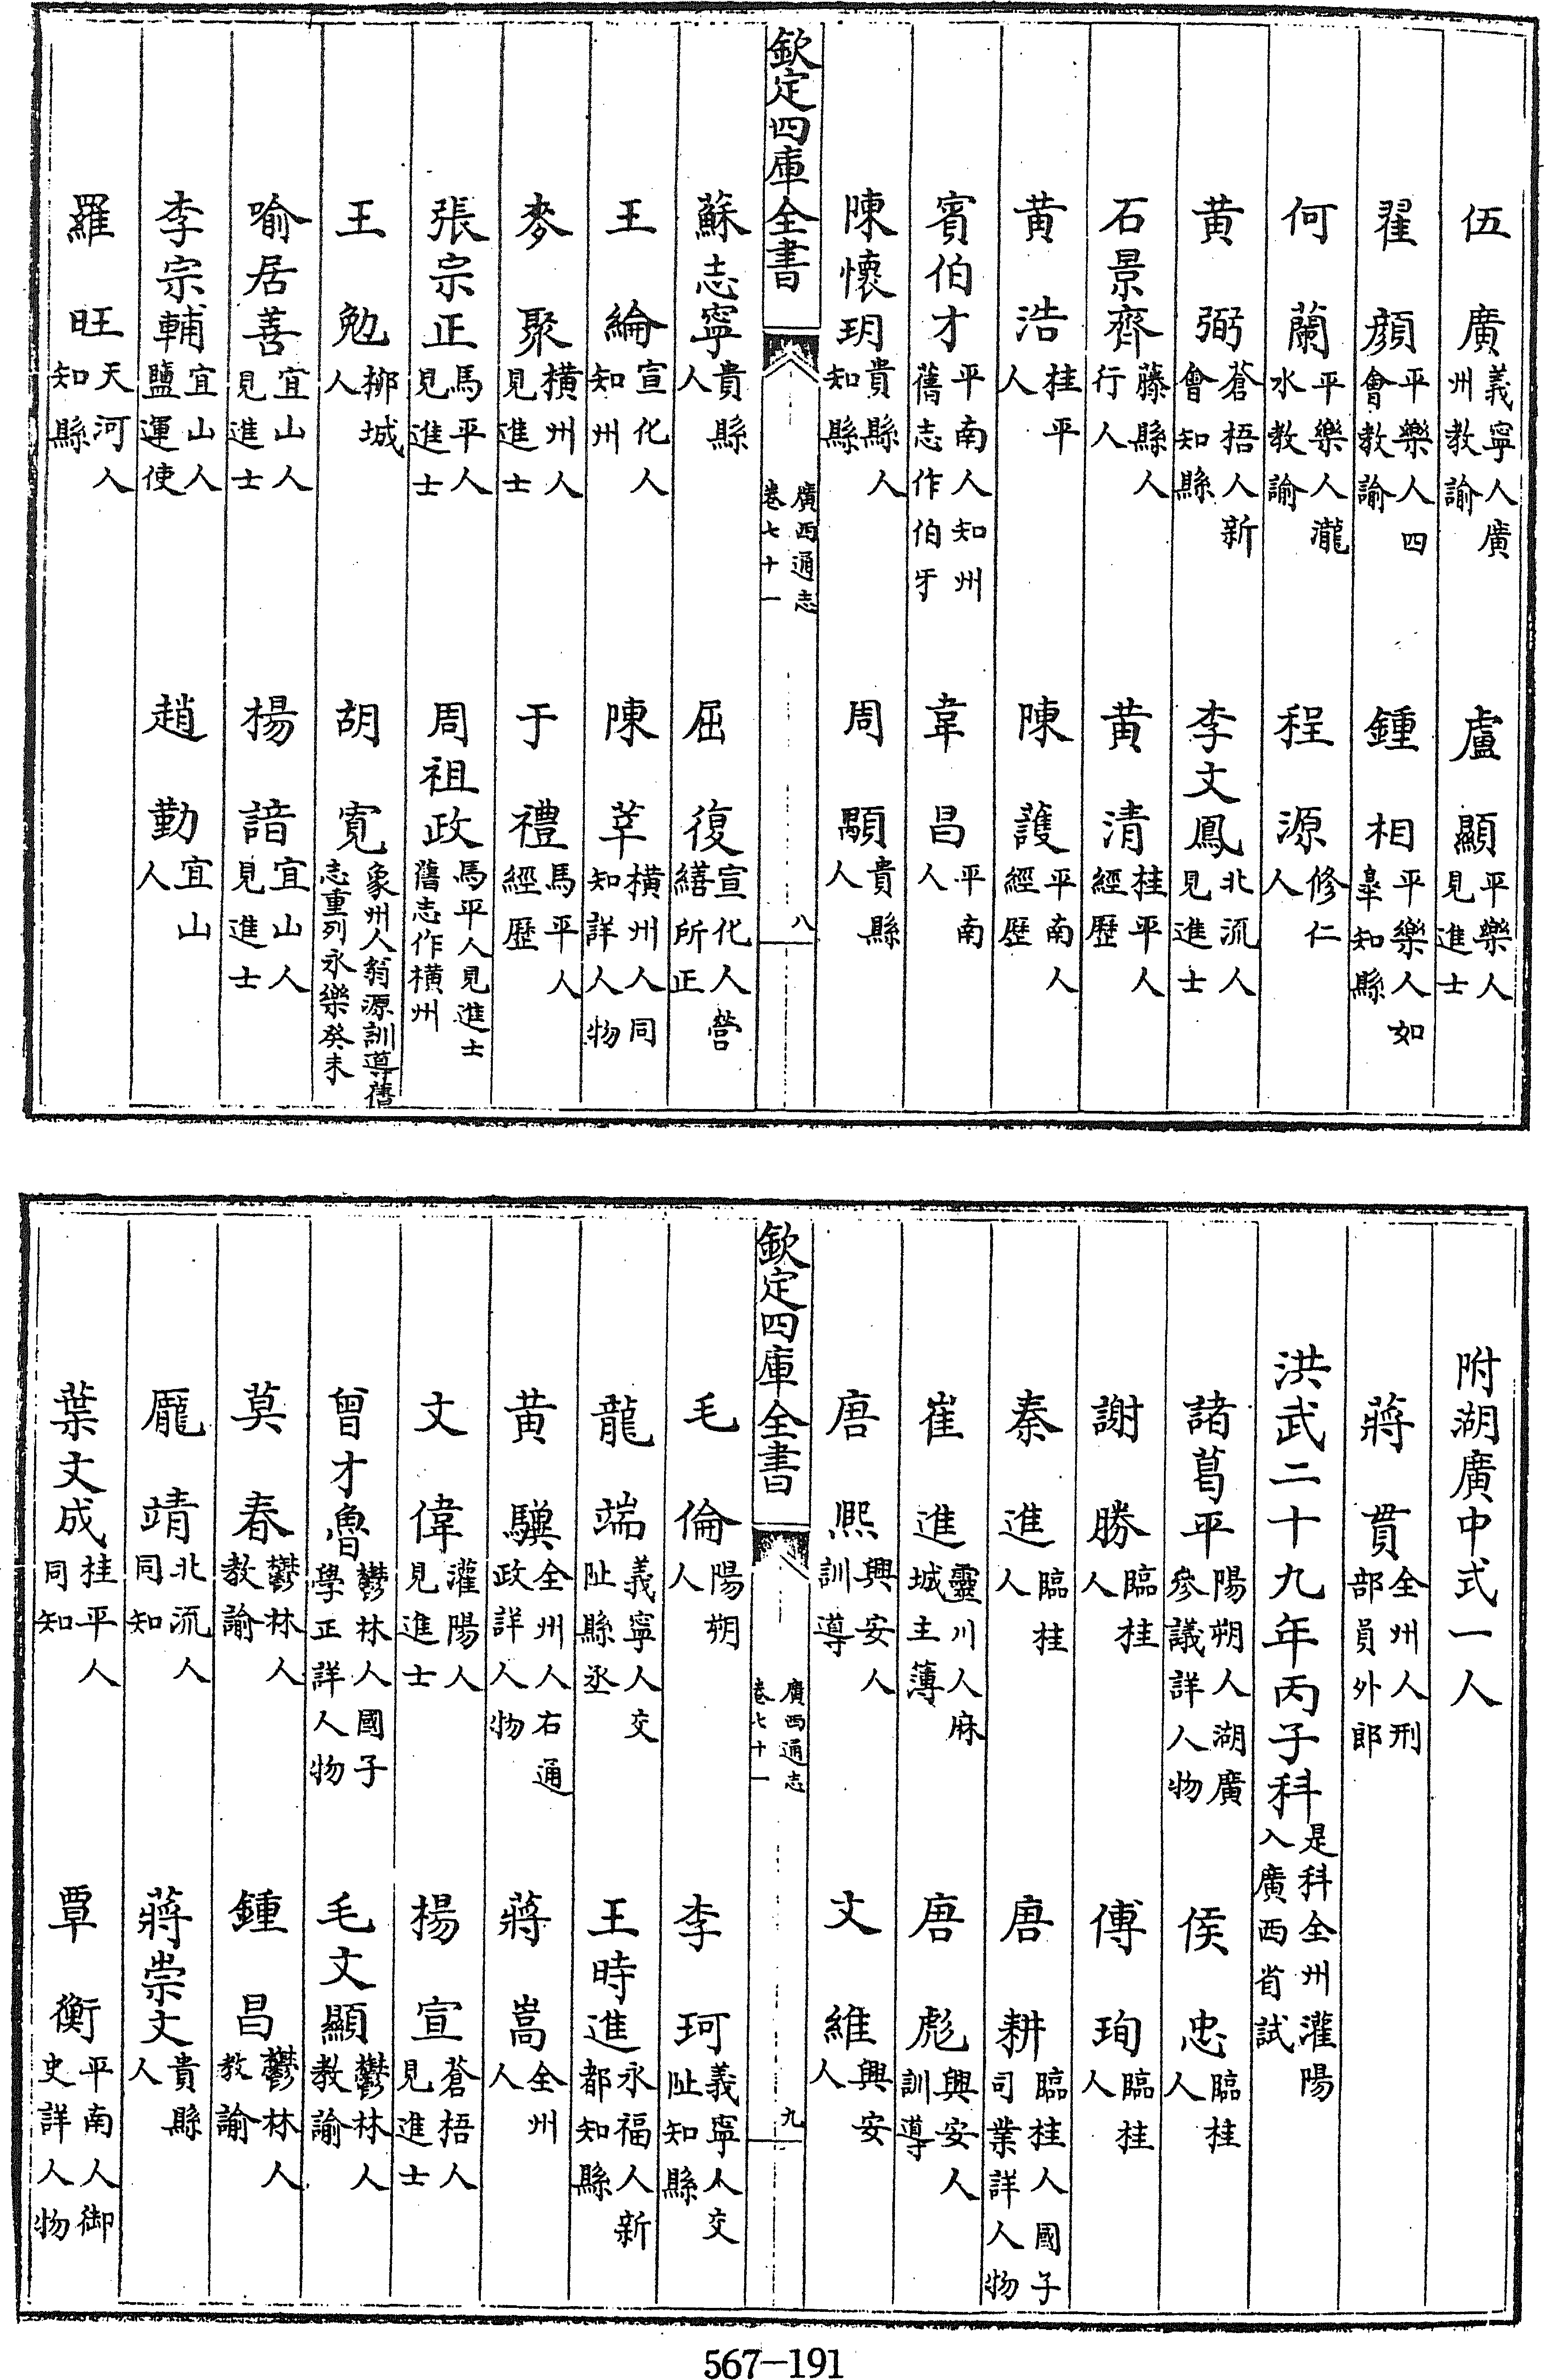 伍廣義寧人廣州教諭　盧顯平樂人見進士
翟顔平樂人四會教諭　鍾相平樂人如臯知縣
何蘭平樂人瀧水教諭　程源修仁人
黄弼蒼梧人新會知縣　李文鳳北流人見進士
石景齊藤縣人行人　黄清桂平人經歷
黄浩桂平人　陳護平南人經歷
賓伯才平南人知州舊志作伯牙　韋昌平南人
陳懷玥貴縣人知縣　周顯貴縣人
欽定四庫全書　廣西通志卷七十一　八
蘇志寧貴縣人　屈復宣化人營繕所正
王綸宣化人知州　陳莘橫州人同知詳人物
麥聚橫州人見進士　于禮馬平人經歷
張宗正馬平人見進士　周祖政馬平人見進士舊志作橫州
王勉栁城人　胡寛象州人翁源訓導舊志重列永樂癸未
喻居善宜山人見進士　楊諳宜山人見進士
李宗輔宜山人鹽運使　趙勤宜山人
羅旺天河人知縣
附湖廣中式一人
蔣貫全州人刑部員外郎
洪武二十九年丙子科是科全州灌陽入廣西省試
諸葛平陽朔人湖廣參議詳人物　侯忠臨桂人
謝勝臨桂人　傅珣臨桂人
秦進臨桂人　唐耕臨桂人國子司業詳人物
崔進靈川人麻城主薄　唐彪興安人訓導
唐熙興安人訓導　文維興安人
欽定四庫全書　廣西通志卷七十一　九
毛倫陽朔人　李珂義寧人交阯知縣
龍端義寧人交阯縣丞　王時進永福人新都知縣
黄驥全州人右通政詳人物　蔣嵩全州人
文偉灌陽人見進士　楊宣蒼梧人見進士
曾才魯鬱林人國子學正詳人物　毛文顯鬱林人教諭
莫春鬱林人教諭　鍾昌鬱林人教諭
龎靖北流人同知　蔣崇文貴縣人
葉文成桂平人同知　覃衡平南人御史詳人物
567—191